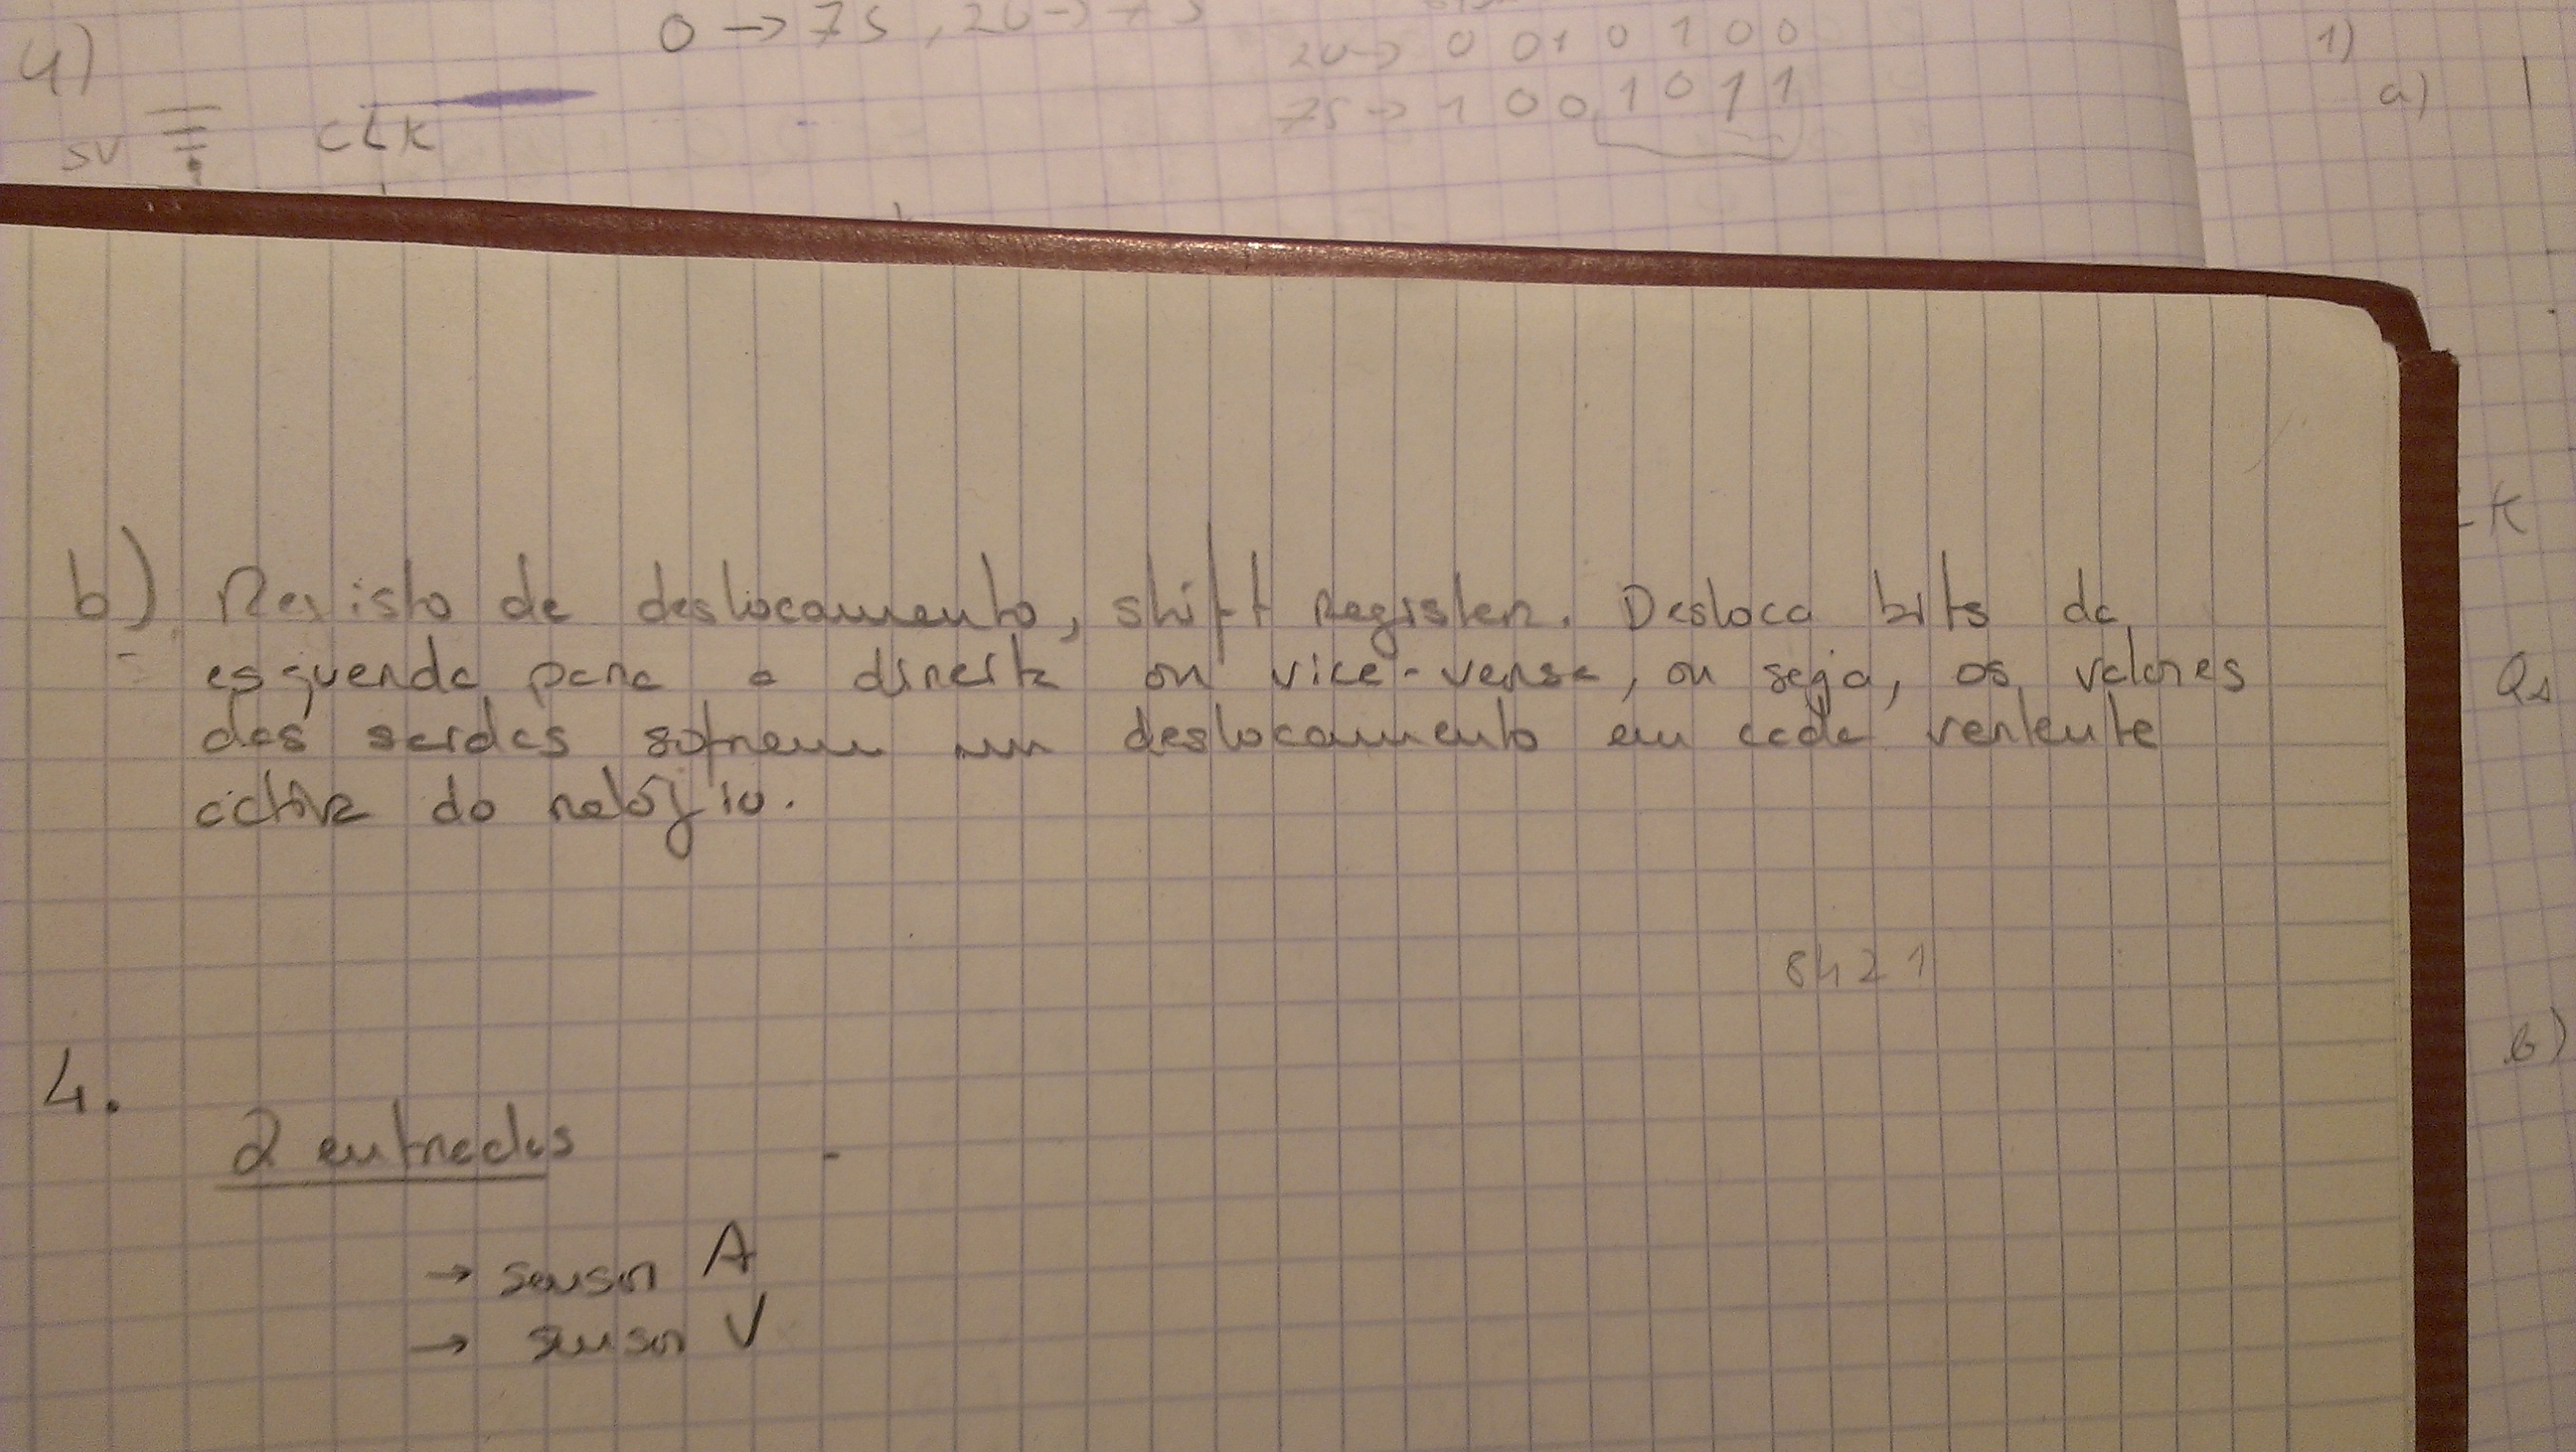 4)
0 → 75, 20 → 75
20 → 0 0 1 0 1 0 0
75 → 1 0 0 1 0 1 1
5V CLK
1)
a)
b) Registo de deslocamento, shift register. Desloca bits da
esquerda para a direita ou vice-versa, ou seja, os valores
das saídas sofrem um deslocamento em cada vertente
activa do relógio.
8421
4.
2 entradas
→ sensor A
→ sensor V
b)